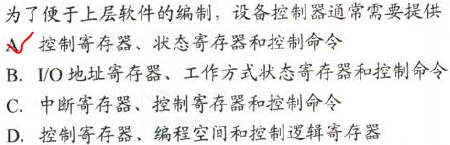 为了便于上层软件的编制，设备控制器通常需要提供
A. 控制寄存器、状态寄存器和控制命令
B. I/O 地址寄存器、工作方式状态寄存器和控制命令
C. 中断寄存器、控制寄存器和控制命令
D. 控制寄存器、编程空间和控制逻辑寄存器